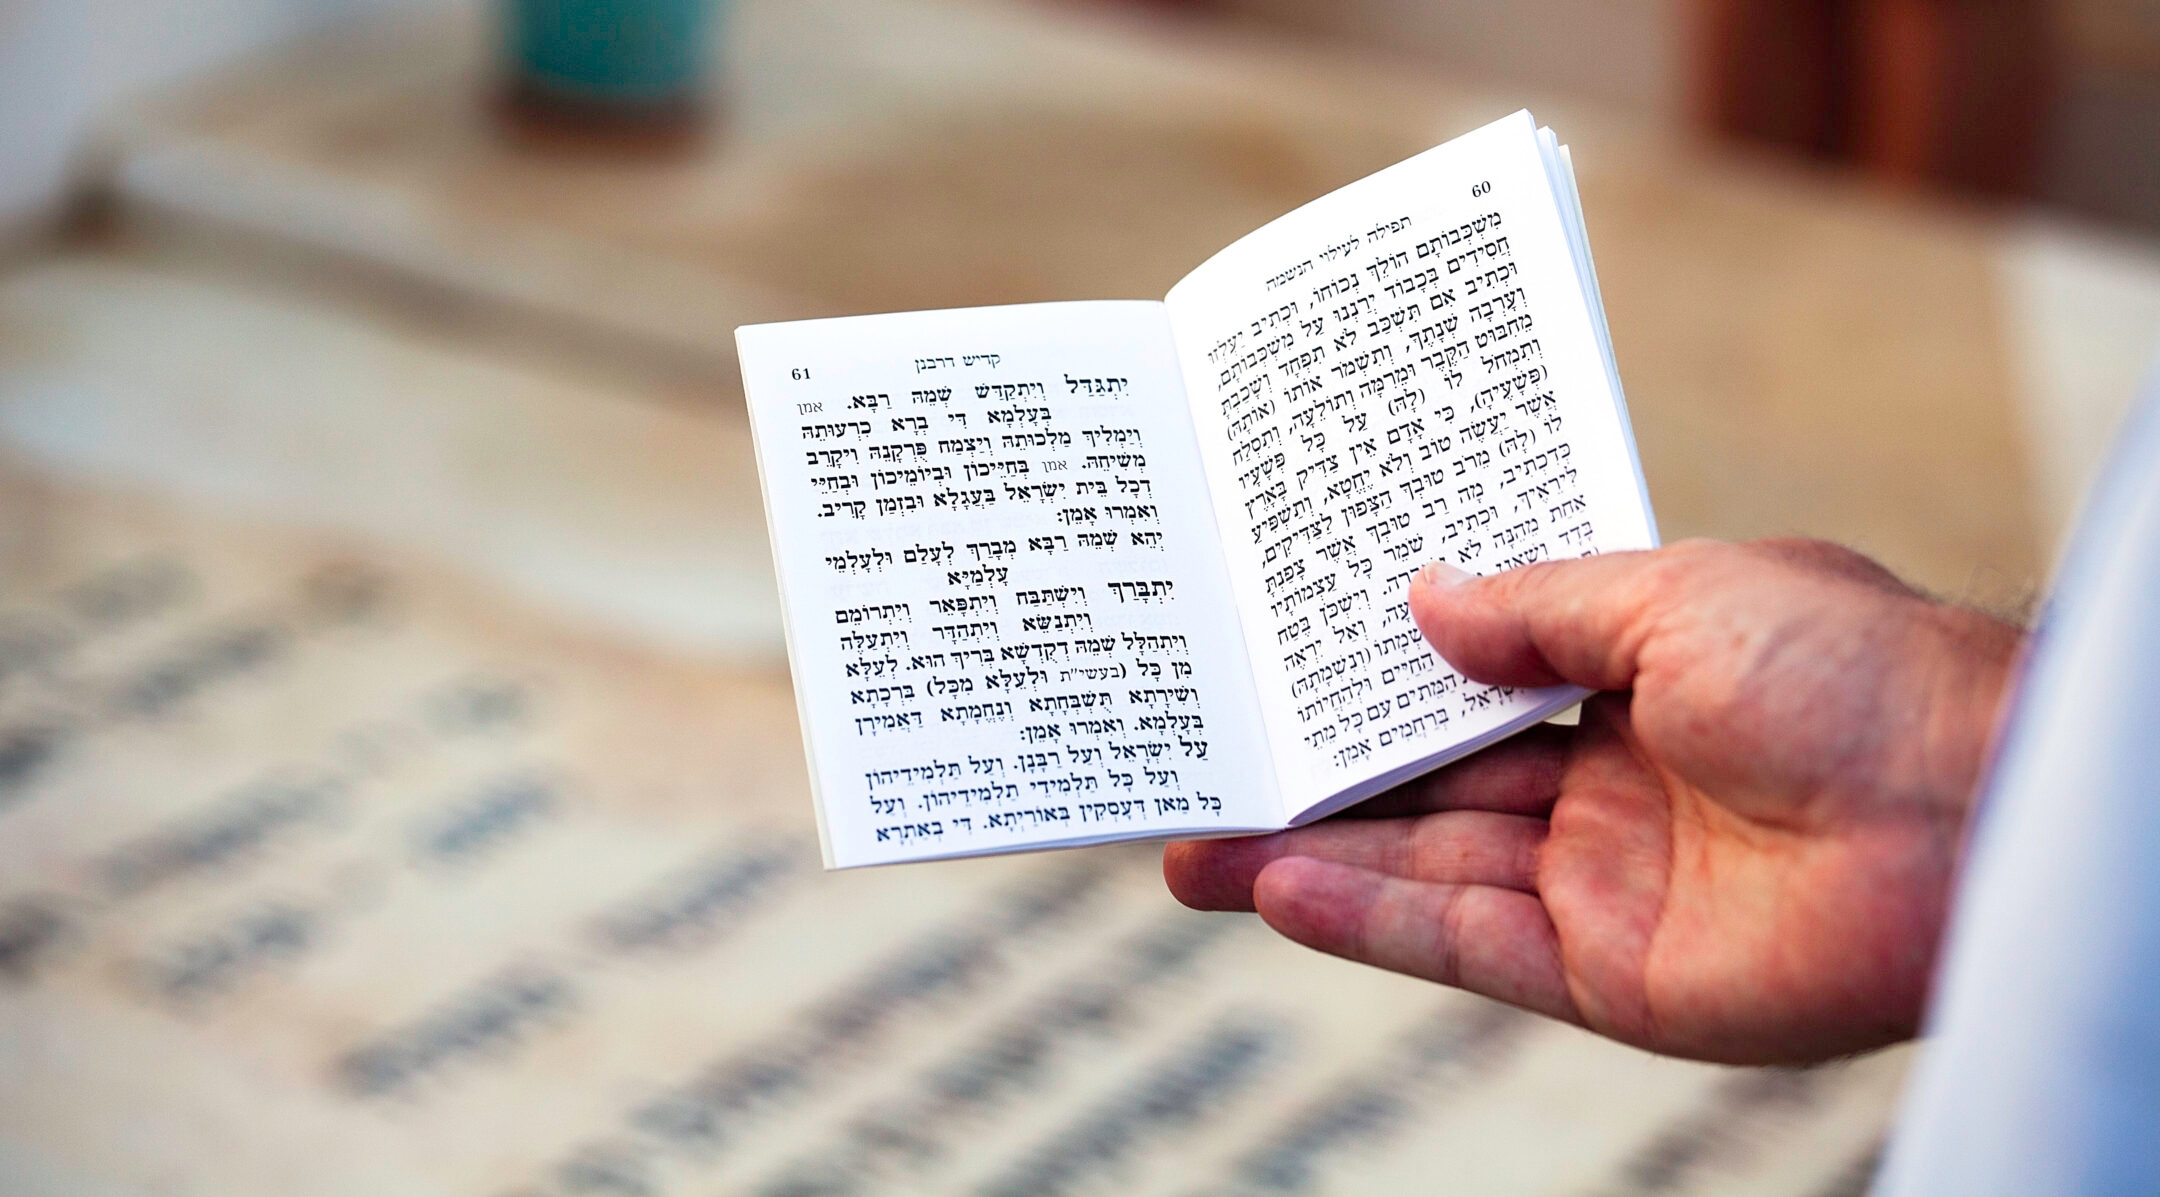 60
תפילה לעילוי הנשמה
מִשְׁכְּבוֹתָם הוֹלֵךְ נְכוֹחוֹ, וּכְתִיב יַעְלְזוּ
חֲסִידִים בְּכָבוֹד יְרַנְּנוּ עַל מִשְׁכְּבוֹתָם,
וּכְתִיב אִם תִּשְׁכַּב לֹא תִפְחָד וְשָׁכַבְתָּ
וְעָרְבָה שְׁנָתֶךָ, וְתִשְׁמֹר אוֹתוֹ (אוֹתָהּ)
מֵחִבּוּט הַקֶּבֶר וּמֵרִמָּה וְתוֹלֵעָה, וְתִסְלַח
וְתִמְחֹל לוֹ (לָהּ) עַל כָּל פְּשָׁעָיו
(פְּשָׁעֶיהָ), כִּי אָדָם אֵין צַדִּיק בָּאָרֶץ
אֲשֶׁר יַעֲשֶׂה טּוֹב וְלֹא יֶחֱטָא, וְתַשְׁפִּיעַ
לוֹ (לָהּ) מֵרֹב טוּבְךָ הַצָּפוּן לַצַּדִּיקִים,
כְּדִכְתִיב, מָה רַב טוּבְךָ אֲשֶׁר צָפַנְתָּ
לִּירֵאֶיךָ, וּכְתִיב, שֹׁמֵר כָּל עַצְמוֹתָיו
אַחַת מֵהֵנָּה לֹא נִשְׁבָּרָה. וְיִשְׁכֹּן בֶּטַח
בָּדָד וְשַׁאֲנָן עָה, וְאַל יִרְאֶה
שְׁמָתוֹ (וְנִשְׁמָתָהּ)
הַחַיִּים וּלְהַחֲיוֹתוֹ
הַמֵּתִים עִם כָּל מֵתֵי
יִשְׂרָאֵל, בְּרַחֲמִים אָמֵן:
61
קדיש דרבנן
יִתְגַּדַּל וְיִתְקַדַּשׁ שְׁמֵהּ רַבָּא. אמן
בְּעָלְמָא דִּי בְרָא כִרְעוּתֵהּ
וְיַמְלִיךְ מַלְכוּתֵהּ וְיַצְמַח פֻּרְקָנֵהּ וִיקָרֵב
מְשִׁיחֵהּ. אמן בְּחַיֵּיכוֹן וּבְיוֹמֵיכוֹן וּבְחַיֵּי
דְכָל בֵּית יִשְׂרָאֵל בַּעֲגָלָא וּבִזְמַן קָרִיב.
וְאִמְרוּ אָמֵן:
יְהֵא שְׁמֵהּ רַבָּא מְבָרַךְ לְעָלַם וּלְעָלְמֵי
עָלְמַיָּא
יִתְבָּרַךְ וְיִשְׁתַּבַּח וְיִתְפָּאַר וְיִתְרוֹמֵם
וְיִתְנַשֵּׂא וְיִתְהַדָּר וְיִתְעַלֶּה
וְיִתְהַלָּל שְׁמֵהּ דְקֻדְשָׁא בְּרִיךְ הוּא. לְעֵלָּא
מִן כָּל (בעשי״ת וּלְעֵלָּא מִכָּל) בִּרְכָתָא
וְשִׁירָתָא תֻּשְׁבְּחָתָא וְנֶחֱמָתָא דַּאֲמִירָן
בְּעָלְמָא. וְאִמְרוּ אָמֵן:
עַל יִשְׂרָאֵל וְעַל רַבָּנָן. וְעַל תַּלְמִידֵיהוֹן
וְעַל כָּל תַּלְמִידֵי תַלְמִידֵיהוֹן. וְעַל
כָּל מַאן דְּעָסְקִין בְּאוֹרַיְתָא. דִּי בְאַתְרָא